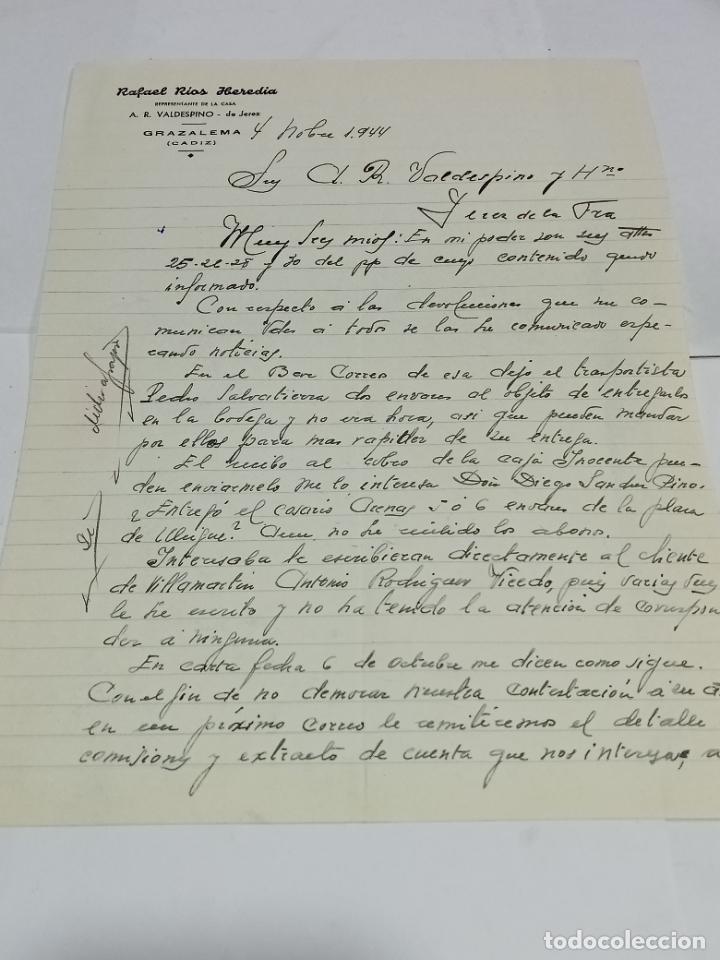 Rafael Ríos Heredia
REPRESENTANTE DE LA CASA
A. R. VALDESPINO - de Jerez
GRAZALEMA
(CADIZ)
4 Nobre 1.944
Sres A. R. Valdespino y Hno
Jerez de la Fra
Muy Sres mios: En mi poder son sus attas
25-26-28 y 30 del pp de cuyo contenido quedo
informado.
Con respecto á las devoluciones que me co-
munican Vdes a todos se las he comunicado espe-
rando noticias.
En el Bar Correos de esa dejo el trasportista
Pedro Salvatierra dos envases al objeto de entregarlos
en la bodega y no era hora, asi que pueden mandar
por ellos para mas rapidez de su entrega.
El recibo al cobro de la caja Inocente pue-
den enviarmelo me lo interesa Don Diego Sanchez Pino.
¿Entregó el cosario Arenas 5 ó 6 envases de la plaza
de Ubrique? Aun no he recibido los abonos.
Interesaba le escribieran directamente al cliente
de Villamartin Antonio Rodriguez Vicedo, pues varias
le he escrito y no ha tenido la atención de correspon
der á ninguna.
En carta fecha 6 de Octubre me dicen como sigue.
Con el fin de no demorar nuestra contestación á su
en un próximo correo le remitiremos el detalle
comisiones y extracto de cuenta que nos interesa,
todocoleccion.net